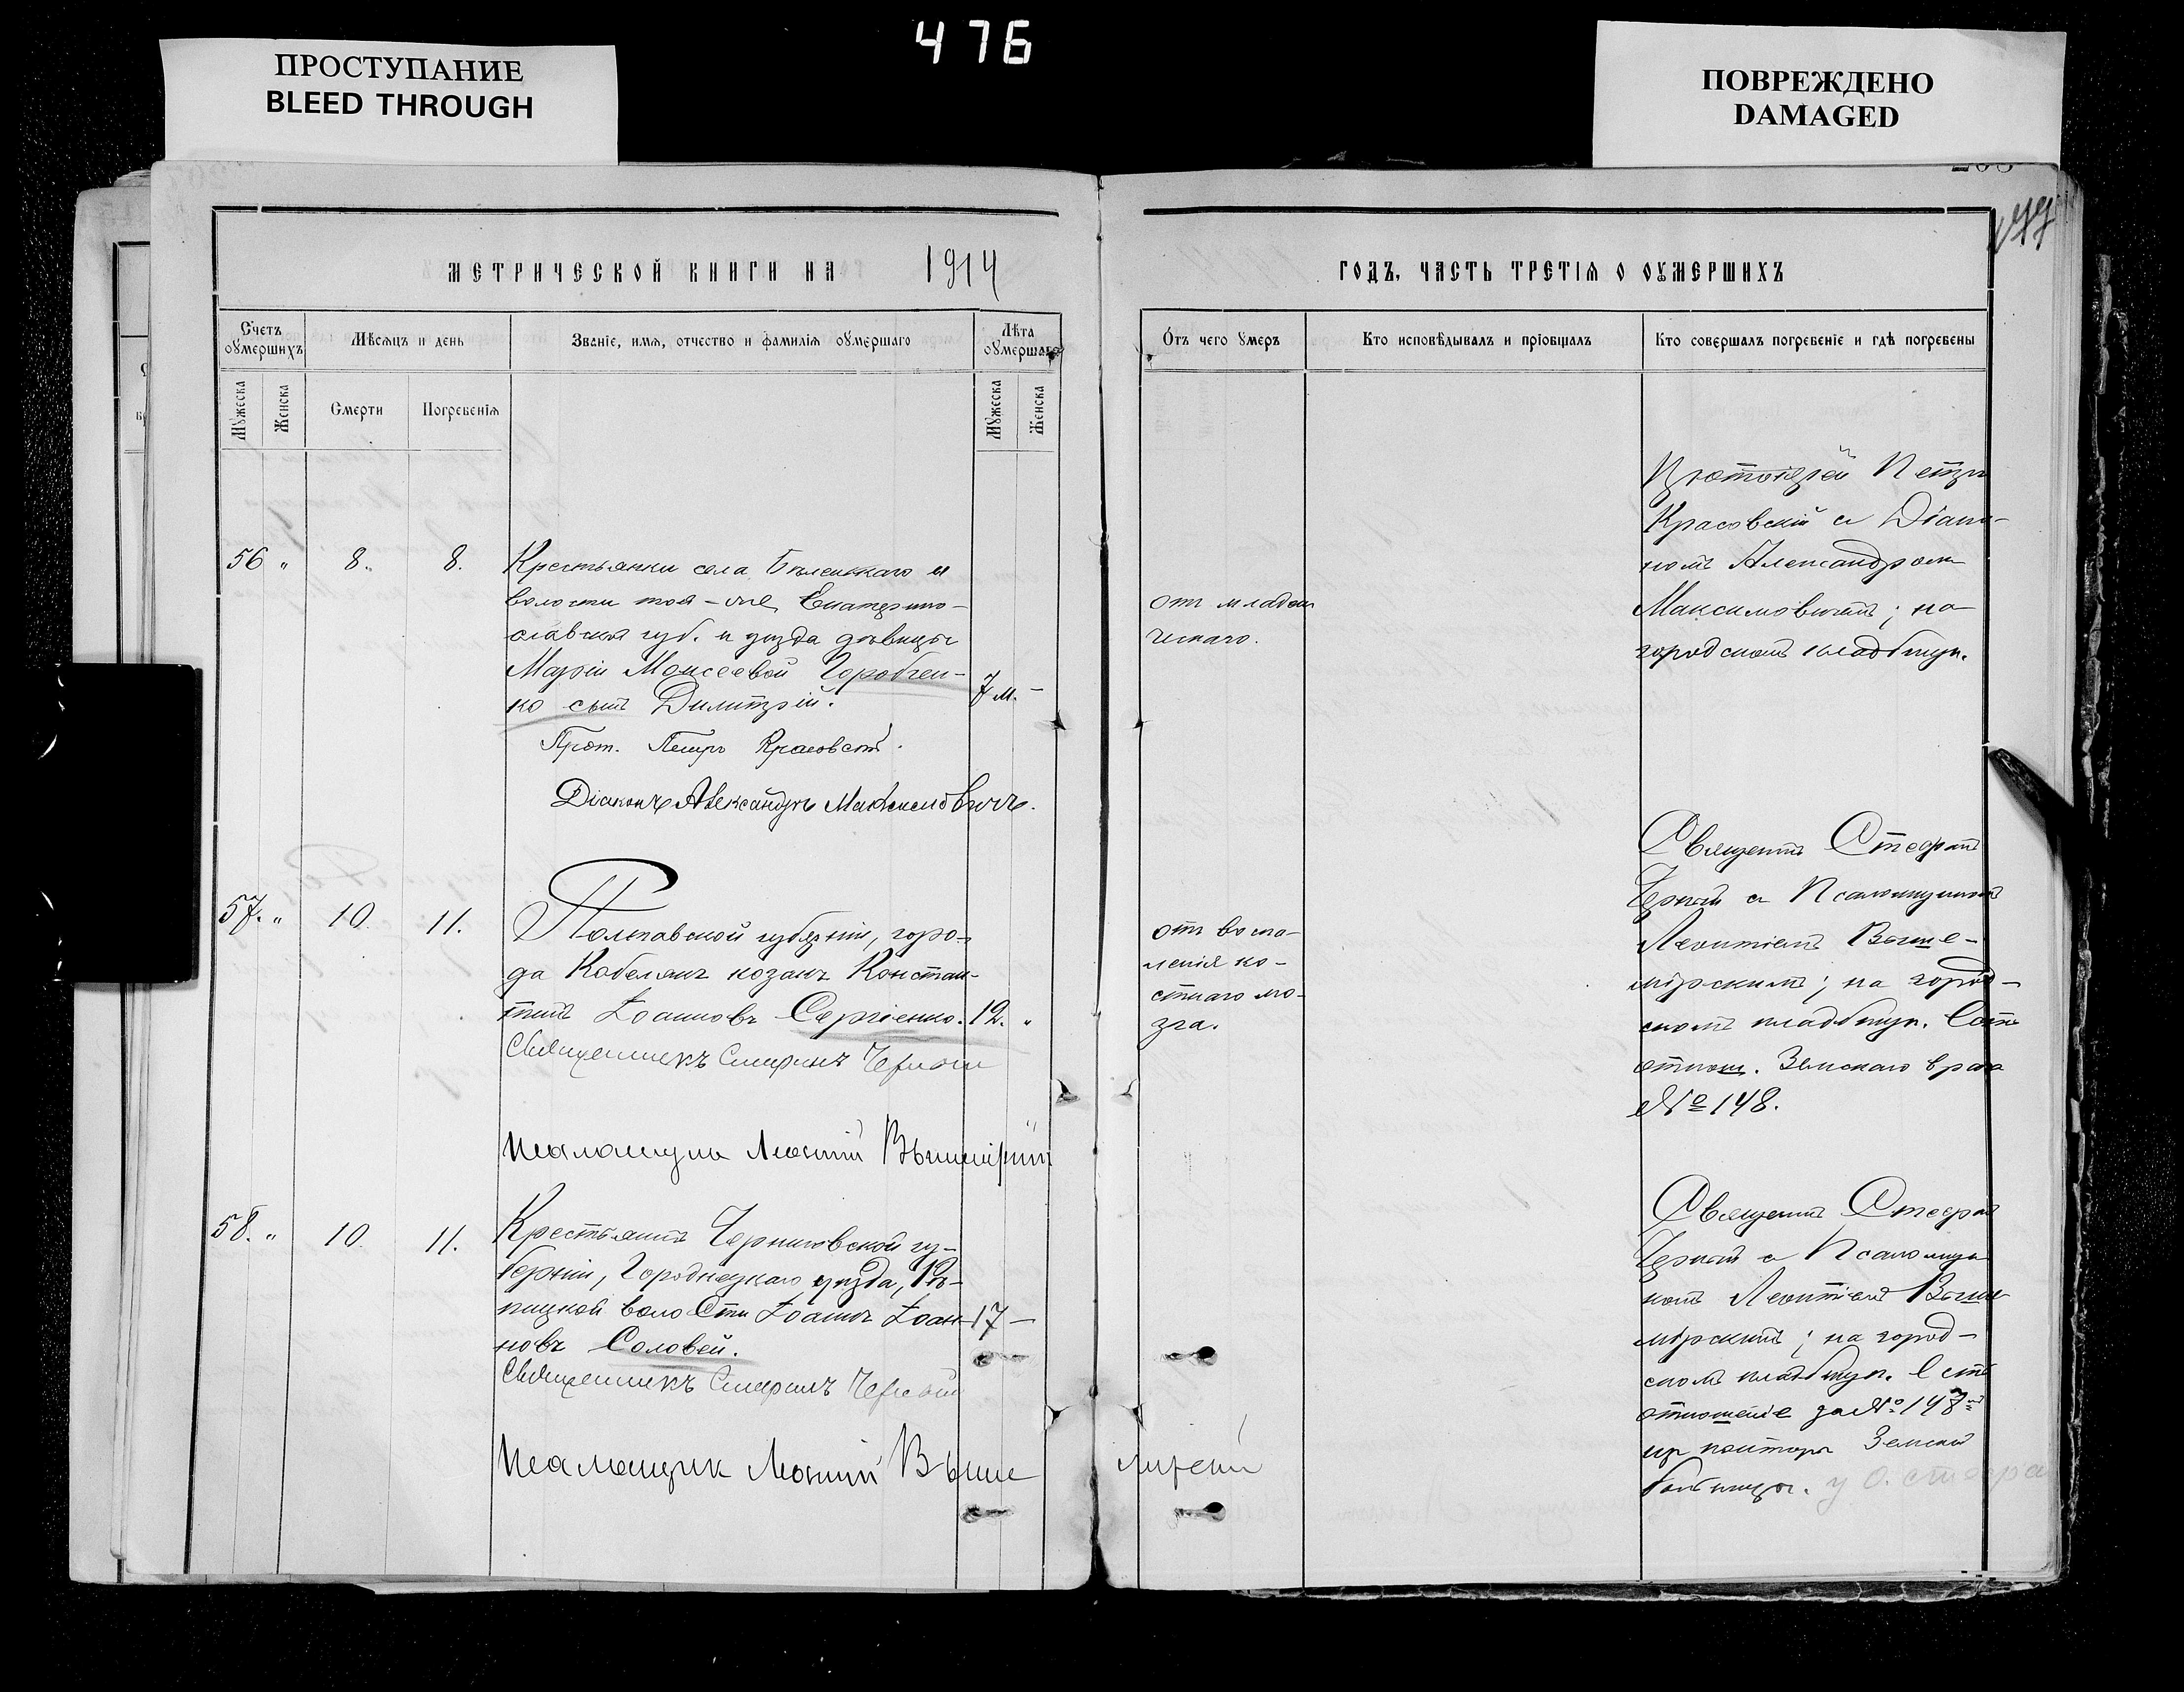 476
ПРОСТУПАНИЕ
BLEED THROUGH
ПОВРЕЖДЕНО
DAMAGED
МЕТРИЧЕСКОЙ КНИГИ НА 1914
ГОДЪ, ЧАСТЬ ТРЕТІЯ О ОУМЕРШИХЪ
Счетъ оумершихъ
Мѣсяцъ и день
Званіе, имя, отчество и фамилія оумершаго
Лѣта оумершаго
Мужеска
Женска
Смерти
Погребенія
Мужеска
Женска
Отъ чего умеръ
Кто исповѣдывалъ и пріобщалъ
Кто совершалъ погребеніе и гдѣ погребены
56 " 8. 8.
Крестьянки села Бѣленькаго и
волости той-же, Екатерино-
славской губ. и уѣзда дѣвицы
Маріи Моисеевой Горобчен-
ко сынъ Димитрій.
7 м. -
Прот. Петръ Красовскій.
Діаконъ Александръ Максимовичъ.
отъ младен
ческаго.
Протоіерей Петръ
Красовскій съ Діако-
номъ Александромъ
Максимовичемъ; на
городскомъ кладбищѣ.
57. " 10. 11.
Полтавской губерніи, горо-
да Кобелякъ козакъ Констан-
тинъ Іоанновъ Сергіенко. 12. "
Священникъ Стефанъ Черный
Псаломщикъ Леонтій Вышемірскій
отъ воспа-
ленія ко-
стнаго мо-
зга.
Священникъ Стефанъ
Черный съ Псаломщикомъ
Леонтіемъ Выше-
мірскимъ; на город-
скомъ кладбищѣ.
отнош. Земскаго врача
№ 148.
58. " 10. 11.
Крестьянинъ Черниговской гу-
берніи, Городнецкаго уѣзда,
пицкой волости Іоаннъ Іоан- 17 -
новъ Соловей.
Священникъ Стефанъ Черный
Псаломщик Леонтій Выше
мірскій
Священникъ Стефанъ
Черный съ Псаломщи
комъ Леонтіемъ Выше
мірскимъ; на город-
скомъ кладбищѣ. Есть
отношеніе за №
из конторы Земской
больницы. у о. Стефана